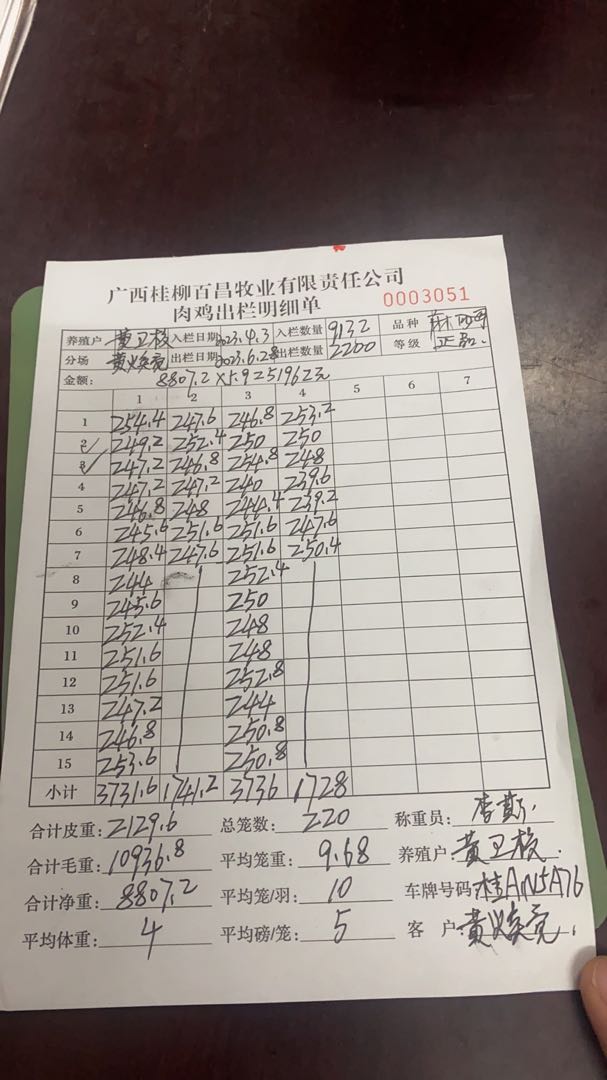 广西桂柳百昌牧业有限责任公司
肉鸡出栏明细单 0003051
养殖户 黄卫核 入栏日期 2023.4.3 入栏数量 9132 品种 麻鸡
分场 黄焕亮 出栏日期 2023.6.28 出栏数量 2200 等级 正品.
金额: 8807.2×5.9=51962元
1 2 3 4 5 6 7
1 254.4 247.6 246.8 253.2
2 249.2 252.4 250 250
3 247.2 246.8 254.8 248
4 247.2 247.2 240 239.6
5 246.8 248 244.4 239.2
6 245.6 251.6 251.6 247.6
7 248.4 247.6 251.6 250.4
8 244 252.4
9 245.6 250
10 252.4 248
11 251.6 248
12 251.6 252.8
13 247.2 244
14 246.8 250.8
15 253.6 250.8
小计 3731.6 1741.2 3736 1728
合计皮重: 2129.6 总笼数: 220 称重员: 李斯.
合计毛重: 10936.8 平均笼重: 9.68 养殖户: 黄卫核.
合计净重: 8807.2 平均笼/羽: 10 车牌号码: 桂AN5A76
平均体重: 4 平均磅/笼: 5 客户: 黄焕亮.